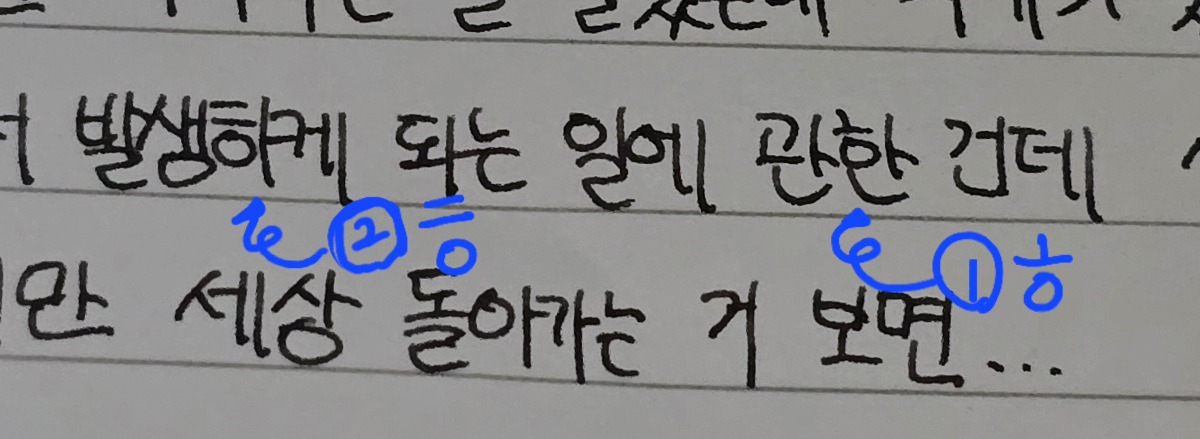 발생하게 되는 일에 관한 건데
② ①
만 세상 돌아가는 거 보면...